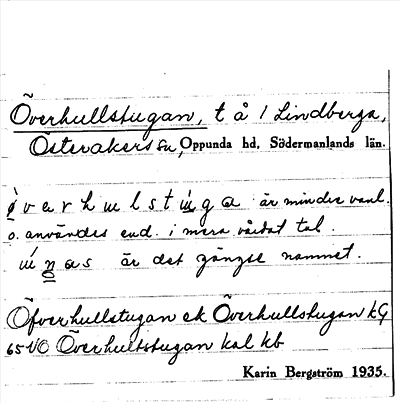 Överhullstugan, t å 1 Lindberga,
Österåkers sn, Oppunda hd, Södermanlands län.
övərhulstúga är mindre vanl.
o. användes end. i mera vårdat tal.
är det gängse namnet.
Öfverhullstugan ek Överhullstugan kG
65 VO Överhultstugan kal kb
Karin Bergström 1935.